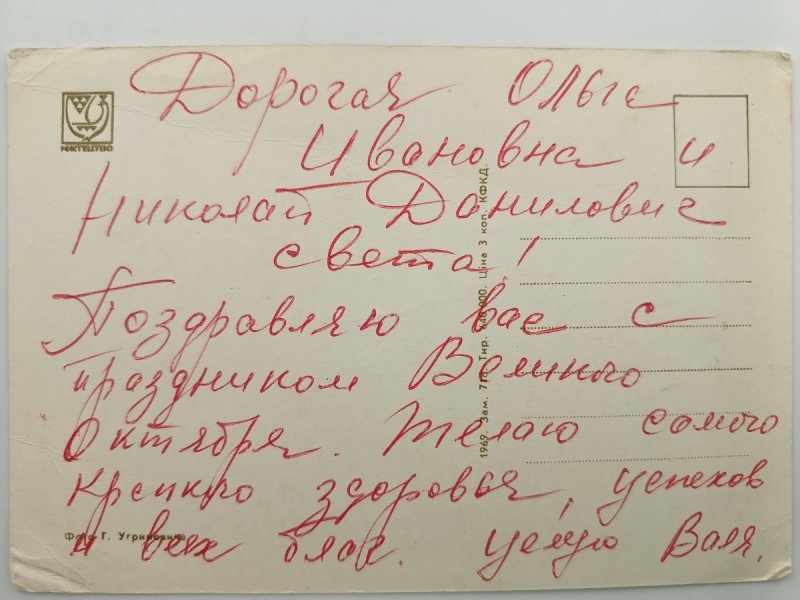 Дорогая Ольга
Ивановна и
Николай Данилович
света!
Поздравляю вас с
праздником Великого
Октября. Желаю самого
крепкого здоровья, успехов
и всех благ. Целую Валя.
МИСТЕЦТВО
Фото Г. Угриновича
1969. Зам. 778. Тир. 640 000. Ціна 3 коп. КФКД.